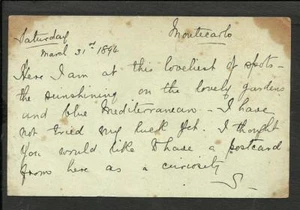 Saturday Montecarlo
March 31st 1894
Here I am at this loveliest of spots -
the sunshining on the lovely gardens
and blue Mediterranean - I have
not tried my luck yet. I thought
you would like to have a postcard
from here as a curiosity
S-